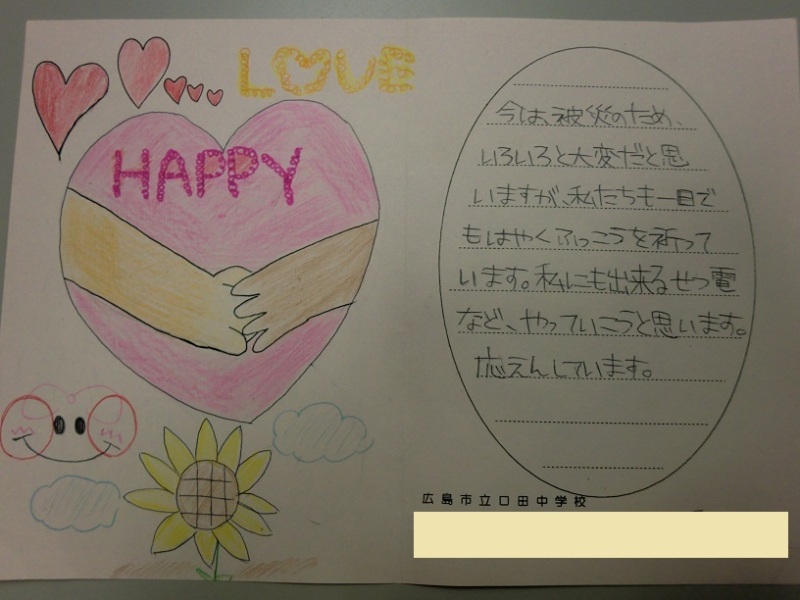 LOVE
HAPPY
今は、被災のため、
いろいろと大変だと思
いますが、私たちも一目で
もはやくふっこうを祈って
います。私にも出来るせつ電
など、やっていこうと思います。
応えんしています。
広島市立口田中学校